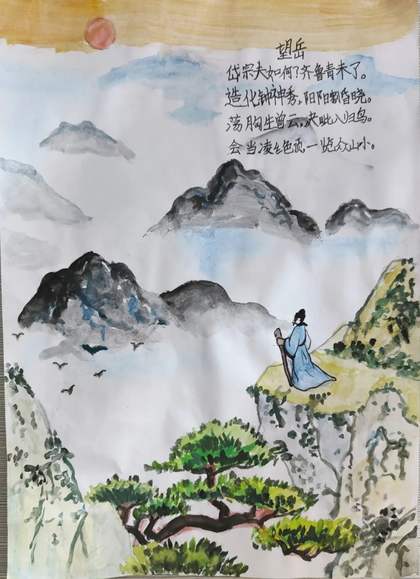 望岳
岱宗夫如何?齐鲁青未了。
造化钟神秀,阴阳割昏晓。
荡胸生曾云,决眦入归鸟。
会当凌绝顶,一览众山小。